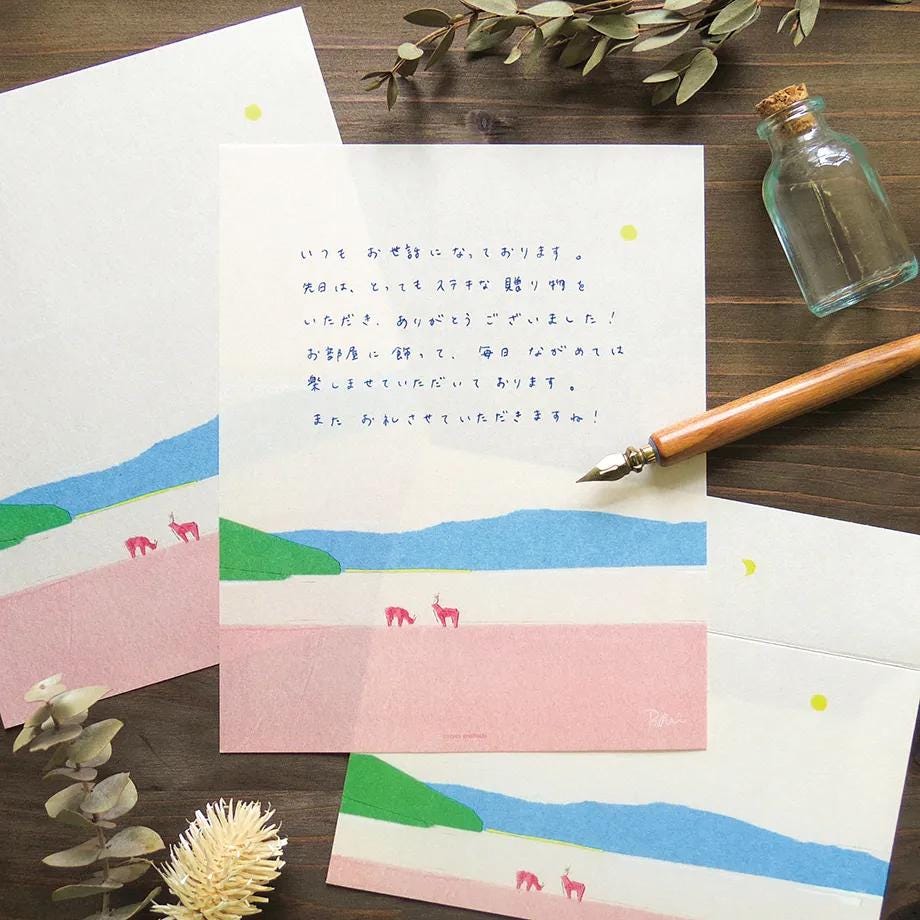 いつも お世話になっております。
先日は、とってもステキな贈り物を
いただき、ありがとうございました！
お部屋に飾って、毎日ながめては
楽しませていただいております。
また お礼させていただきますね！